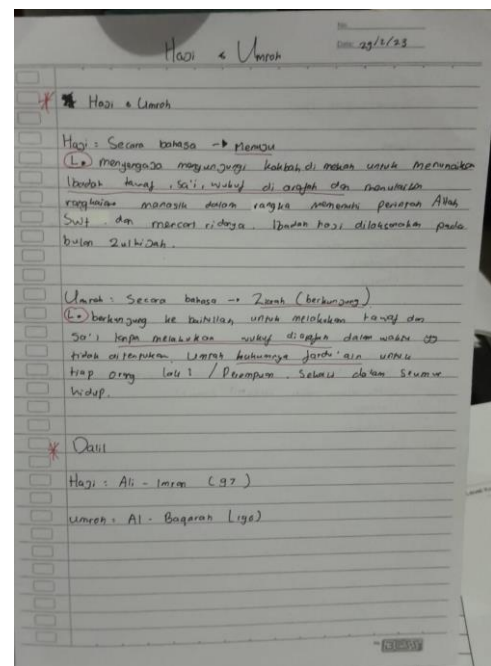 No.
Date: 29/2/23
Haji & Umroh
* Haji & Umroh
Haji : Secara bahasa → Menuju
L. menyengaja mengunjungi kakbah di mekah untuk menunaikan
Ibadah tawaf, sa'i, wukuf di arafah dan menunaikan
rangkaian manasik dalam rangka memenuhi perintah Allah
Swt dan mencari ridanya. Ibadah haji dilaksanakan pada
bulan Zulhijah.
Umrah : Secara bahasa → Ziarah (berkunjung)
L. berkunjung ke baitullah untuk melakukan tawaf dan
Sa'i tanpa melakukan wukuf diarafah dalam waktu
tidak ditentukan. Umrah hukumnya fardu 'ain untuk
tiap orang laki2 / Perempuan. Sekali dalam seumur
hidup.
* Dalil
Haji : Ali - Imron (97)
Umroh : Al - Baqarah (196)